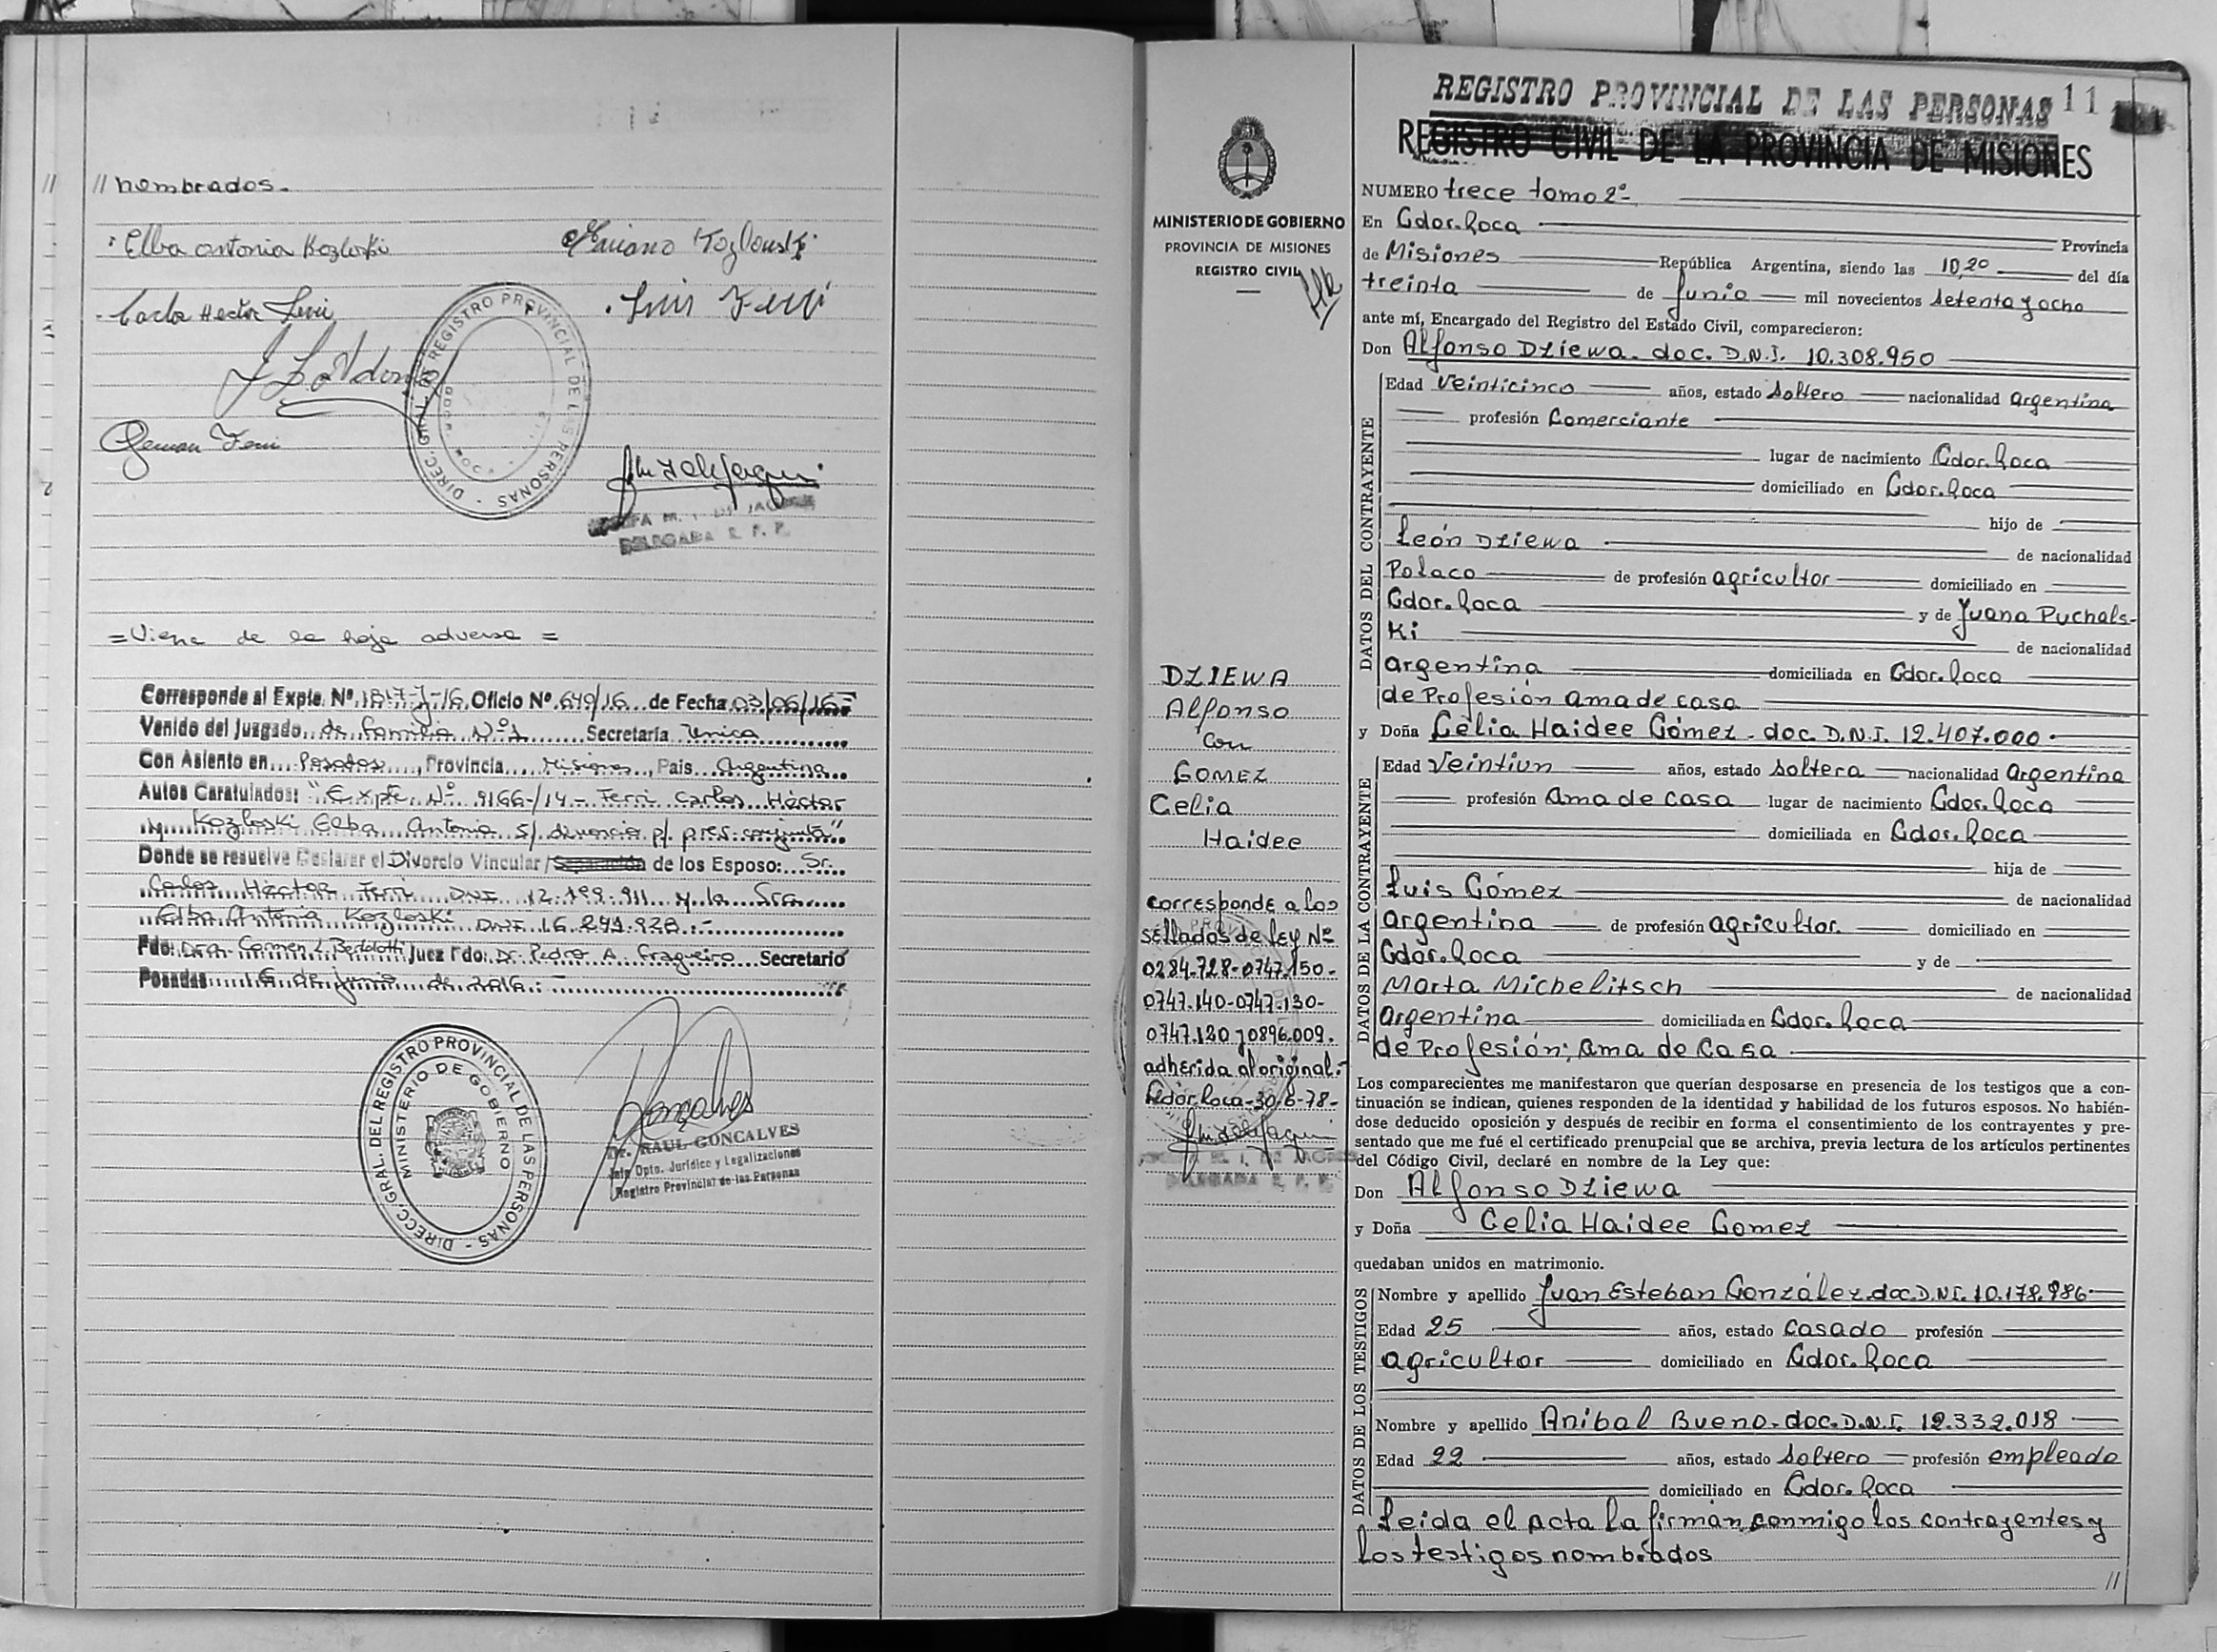 // nombrados.
Elba Antonia Kozloski
Mariano Kozlouski
Carlos Hector Ferri
Luis Ferri
German Ferri
DIREC. GRAL. DEL REGISTRO PROVINCIAL DE LAS PERSONAS
DELEGADA R. P. P.
= Viene de la hoja adversa =
Corresponde al Expte. Nº 1817-J-16 Oficio Nº 649/16 de Fecha 03/06/16
Venido del Juzgado de familia Nº 1 Secretaría Unica
Con Asiento en Posadas, Provincia Misiones, Pais Argentina
Autos Caratulados: "Expte Nº 9166-/14- Ferri Carlos Héctor
y Kozloski Elba Antonia s/ divorcio p/ pres. conjunta"
Donde se resuelve Declarar el Divorcio Vincular / Separación de los Esposo: Sr.
Carlos Héctor Ferri DNI 12.199.911 y la Sra.
Elba Antonia Kozloski DNI 16.241.928.-
Fdo: Dra. Carmen L. Bertolotti Juez Fdo: Dr. Pedro A. Fragueiro Secretario
Posadas 16 de junio de 2016.-
DIRECC. GRAL. DEL REGISTRO PROVINCIAL DE LAS PERSONAS
MINISTERIO DE GOBIERNO
Dr. RAUL GONCALVES
Jefe Dpto. Jurídico y Legalizaciones
Registro Provincial de las Personas
MINISTERIO DE GOBIERNO
PROVINCIA DE MISIONES
REGISTRO CIVIL
DZIEWA
Alfonso
con
GOMEZ
Celia
Haidee
corresponde a los
sellados de ley Nº
0284.728-0747.150-
0747.140-0747.130-
0747.120 y 0896.009.
adherida al original.-
Gdor. Roca-30-6-78-
DELEGADA R. P. P.
REGISTRO PROVINCIAL DE LAS PERSONAS 11
REGISTRO CIVIL DE LA PROVINCIA DE MISIONES
NUMERO trece tomo 2º-
En Gdor. Roca Provincia
de Misiones República Argentina, siendo las 10,20 del día
treinta de Junio mil novecientos setenta y ocho
ante mí, Encargado del Registro del Estado Civil, comparecieron:
Don Alfonso Dziewa. doc. D.N.I. 10.308.950
DATOS DEL CONTRAYENTE
Edad Veinticinco años, estado soltero nacionalidad argentina
profesión Comerciante
lugar de nacimiento Gdor. Roca
domiciliado en Gdor. Roca
hijo de
León Dziewa de nacionalidad
Polaco de profesión agricultor domiciliado en
Gdor. Roca y de Juana Puchals-
Ki de nacionalidad
argentina domiciliada en Gdor. Roca
de Profesión ama de casa
y Doña Celia Haidee Gómez - doc. D.N.I. 12.407.000.
DATOS DE LA CONTRAYENTE
Edad Veintiun años, estado soltera nacionalidad Argentina
profesión ama de casa lugar de nacimiento Gdor. Roca
domiciliada en Gdor. Roca
hija de
Luis Gómez de nacionalidad
argentina de profesión agricultor. domiciliado en
Gdor. Roca y de
Marta Michelitsch de nacionalidad
Argentina domiciliada en Gdor. Roca
de Profesión; ama de casa
Los comparecientes me manifestaron que querían desposarse en presencia de los testigos que a con-
tinuación se indican, quienes responden de la identidad y habilidad de los futuros esposos. No habién-
dose deducido oposición y después de recibir en forma el consentimiento de los contrayentes y pre-
sentado que me fué el certificado prenupcial que se archiva, previa lectura de los artículos pertinentes
del Código Civil, declaré en nombre de la Ley que:
Don Alfonso Dziewa
y Doña Celia Haidee Gomez
quedaban unidos en matrimonio.
DATOS DE LOS TESTIGOS
Nombre y apellido Juan Esteban González. doc. D.N.I. 10.178.986
Edad 25 años, estado casado profesión
agricultor domiciliado en Gdor. Roca
Nombre y apellido Anibal Bueno. doc. D.N.I. 12.332.018
Edad 22 años, estado soltero profesión empleado
domiciliado en Gdor. Roca
Leida el acta la firman conmigo los contrayentes y
los testigos nombrados
//